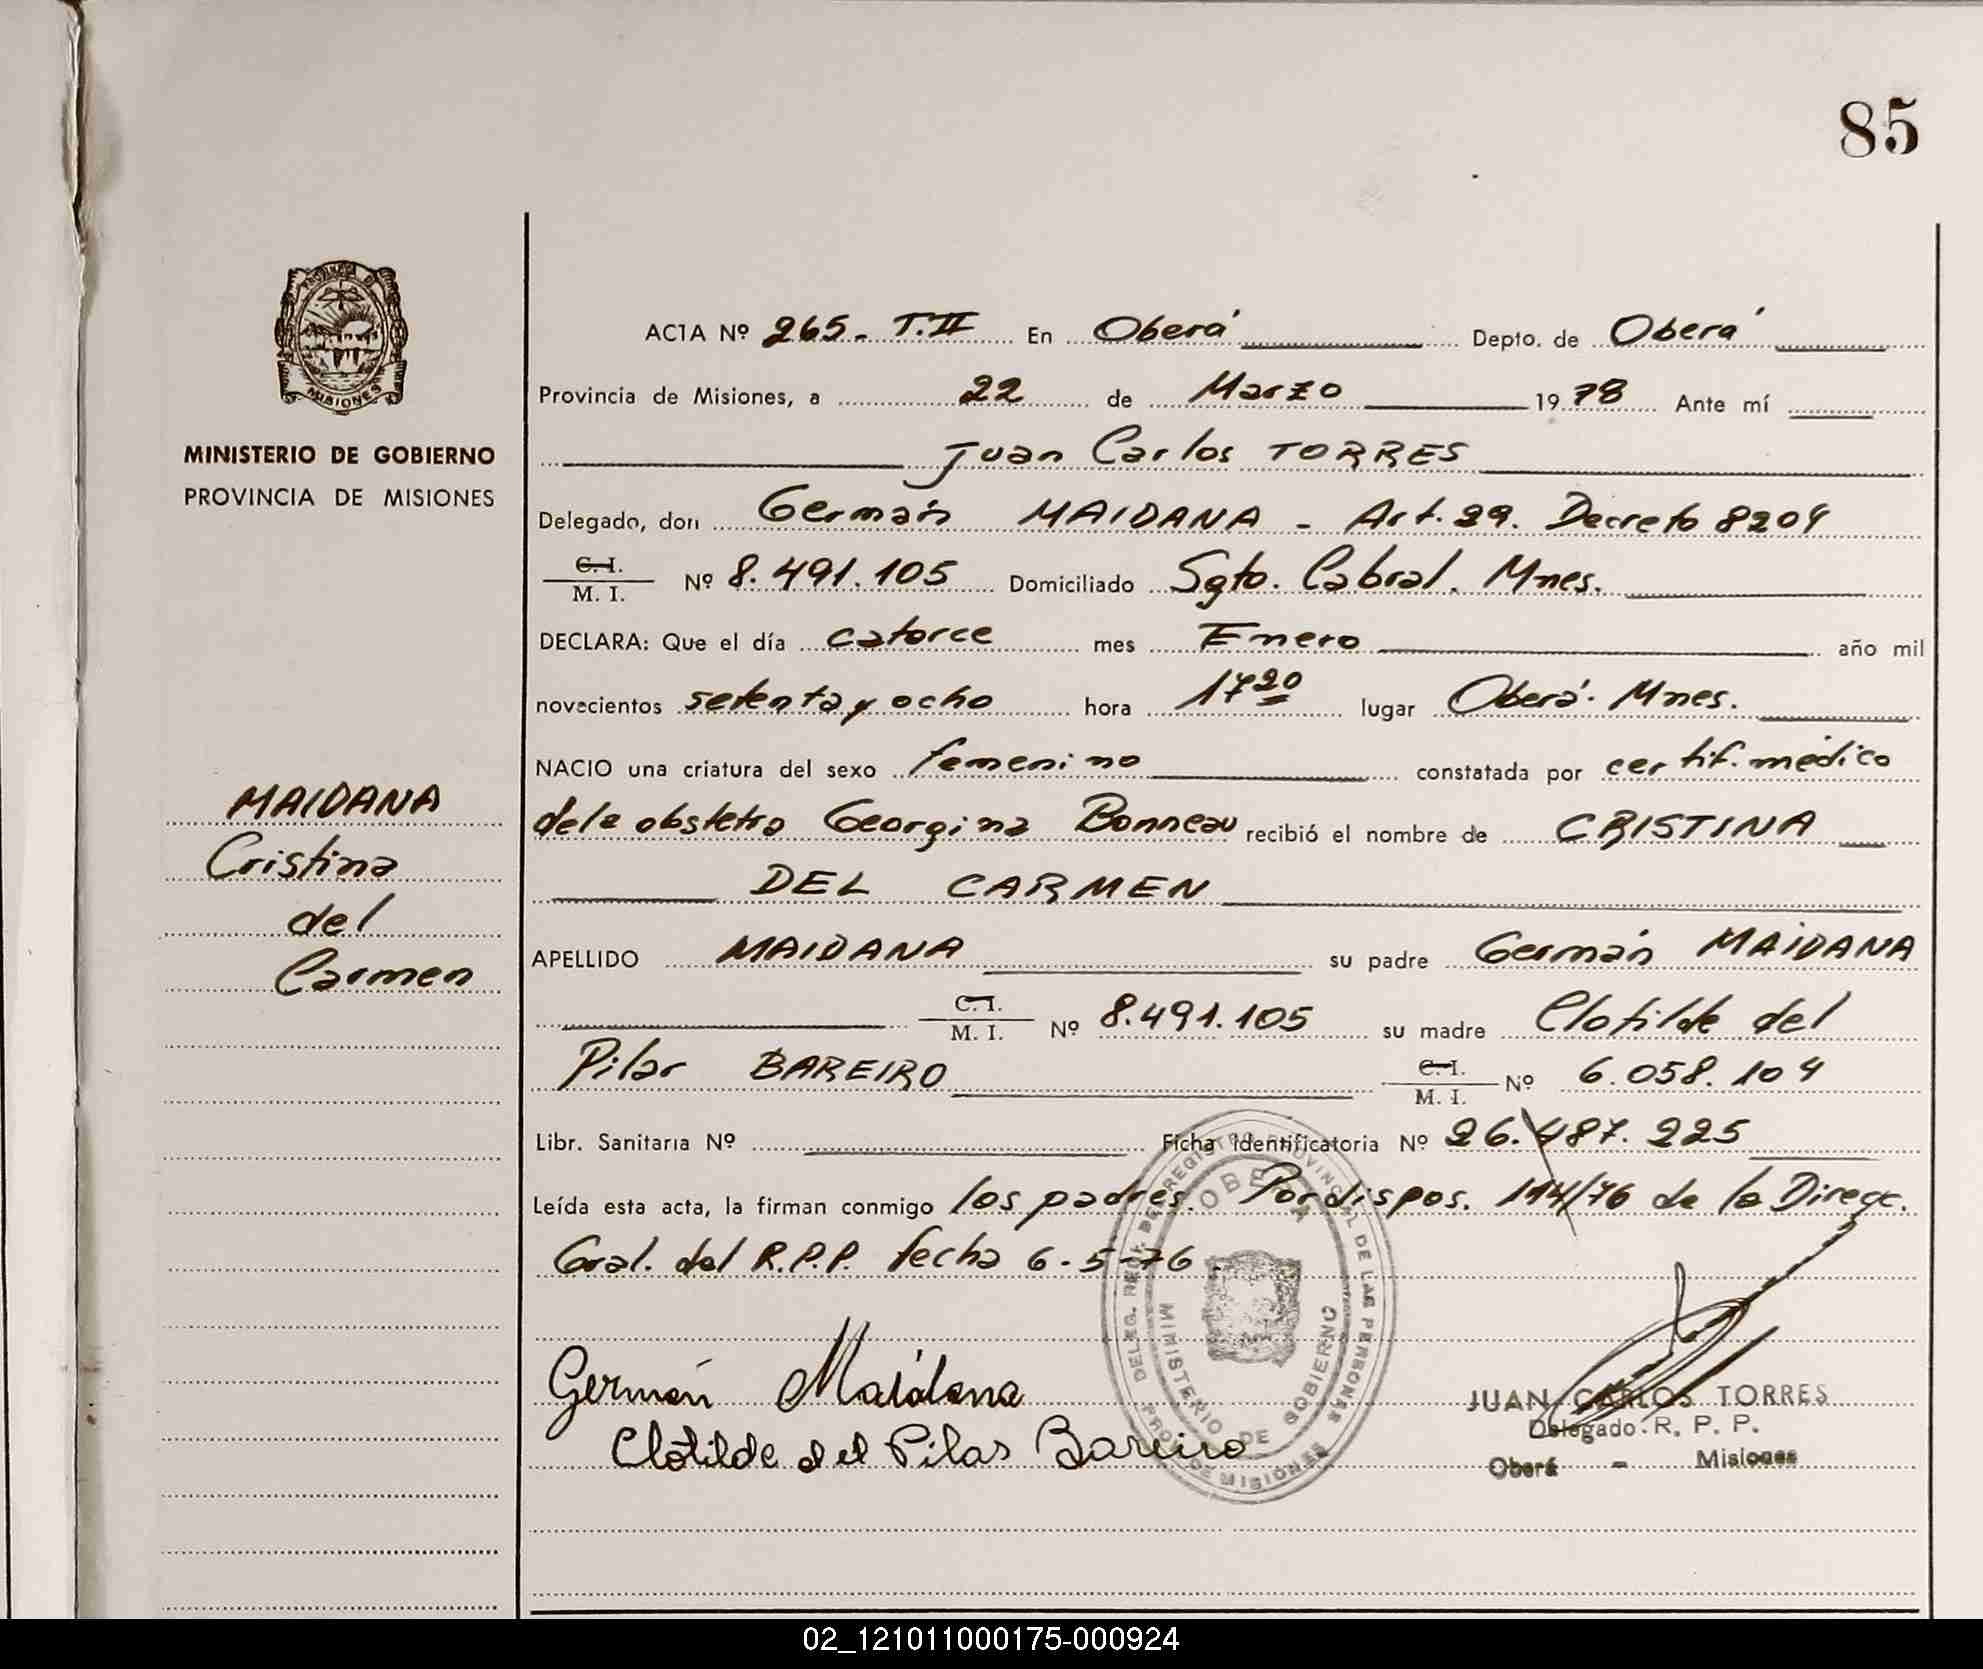 85
MISIONES
MINISTERIO DE GOBIERNO
PROVINCIA DE MISIONES
MAIDANA
Cristina
del
Carmen
ACTA Nº 265 - T.II En Oberá Depto. de Oberá
Provincia de Misiones, a 22 de Marzo 1978 Ante mí
Juan Carlos TORRES
Delegado, don Germán MAIDANA - Art. 29. Decreto 8204
C.I.
M. I. Nº 8.491.105 Domiciliado Sgto. Cabral. Mnes.
DECLARA: Que el día catorce mes Enero año mil
novecientos setenta y ocho hora 17 20 lugar Oberá. Mnes.
NACIO una criatura del sexo femenino constatada por certif. médico
de la obstetra Georgina Bonneau recibió el nombre de CRISTINA
DEL CARMEN
APELLIDO MAIDANA su padre Germán MAIDANA
C.I.
M. I. Nº 8.491.105 su madre Clotilde del
Pilar BAREIRO C.I.
M. I. Nº 6.058.104
Libr. Sanitaria Nº Ficha Identificatoria Nº 26.487.225
Leída esta acta, la firman conmigo los padres. Por dispos. 114/76 de la Direcc.
Gral. del R.P.P. fecha 6-5-76.
Germán Maidana
Clotilde del Pilar Bareiro
OBERA
MINISTERIO DE GOBIERNO
PROV. DE MISIONES
JUAN CARLOS TORRES
Delegado R. P. P.
Oberá - Misiones
02_121011000175-000924